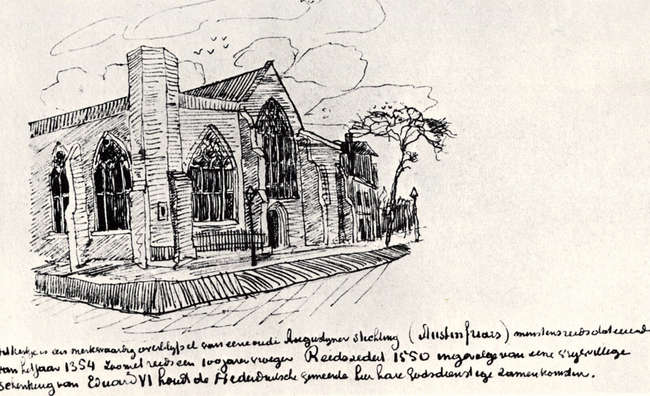 kerkje is een merkwaardig overblyfsel van eene oude Augustyner stichting (Austinfriars) minstens reeds dateerende
van het jaar 1354 zoo niet reeds een 100 jaren vroeger Reeds sedert 1550 ingevolge van eene vrywillige
schenking van Eduard VI houdt de Nederduitsche gemeente hier hare Godsdienstige zamenkomsten.